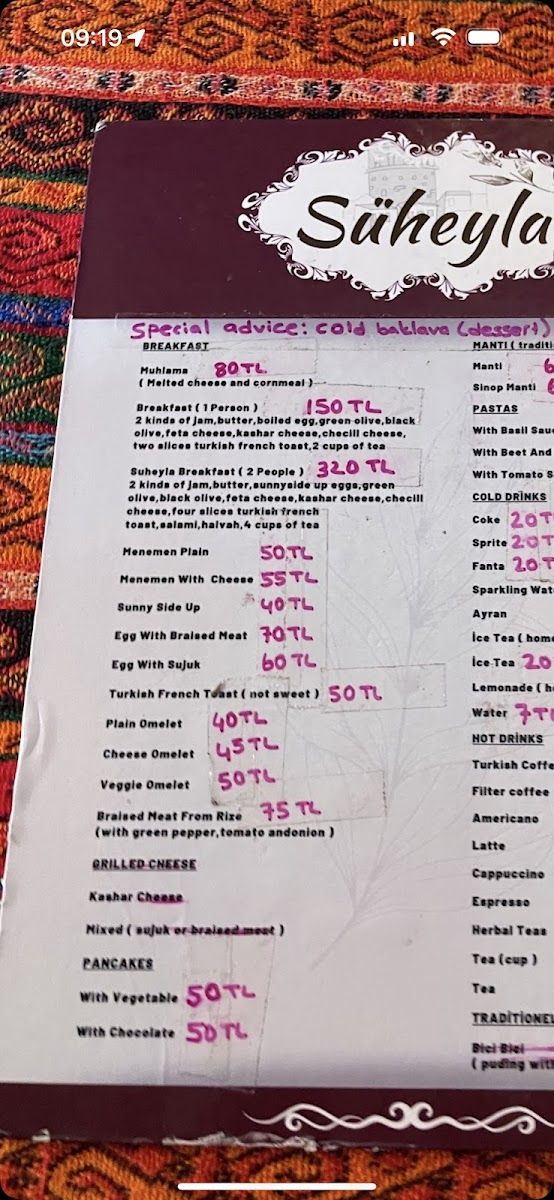 09:19
Süheyla
Special advice: cold baklava (dessert)
BREAKFAST
Muhlama 80TL
( Melted cheese and cornmeal )
Breakfast ( 1 Person ) 150 TL
2 kinds of jam,butter,boiled egg,green olive,black
olive,feta cheese,kashar cheese,checill cheese,
two slices turkish french toast,2 cups of tea
Suheyla Breakfast ( 2 People ) 320 TL
2 kinds of jam,butter,sunnyside up eggs,green
olive,black olive,feta cheese,kashar cheese,checill
cheese,four slices turkish french
toast,salami,halvah,4 cups of tea
Menemen Plain 50TL
Menemen With Cheese 55TL
Sunny Side Up 40TL
Egg With Braised Meat 70TL
Egg With Sujuk 60TL
Turkish French Toast ( not sweet ) 50TL
Plain Omelet 40TL
Cheese Omelet 45TL
Veggie Omelet 50TL
Braised Meat From Rize 75TL
(with green pepper,tomato andonion )
GRILLED CHEESE
Kashar Cheese
Mixed ( sujuk or braised meat )
PANCAKES
With Vegetable 50TL
With Chocolate 50TL
MANTI ( traditi
Manti 6
Sinop Manti
PASTAS
With Basil Sau
With Beet And
With Tomato S
COLD DRİNKS
Coke 20T
Sprite 20T
Fanta 20T
Sparkling Wat
Ayran
İce Tea ( hom
İce Tea 20
Lemonade ( h
Water 7TL
HOT DRİNKS
Turkish Coffe
Filter coffee
Americano
Latte
Cappuccino
Espresso
Herbal Teas
Tea (cup )
Tea
TRADİTİONEL
Bici Bici
( puding with